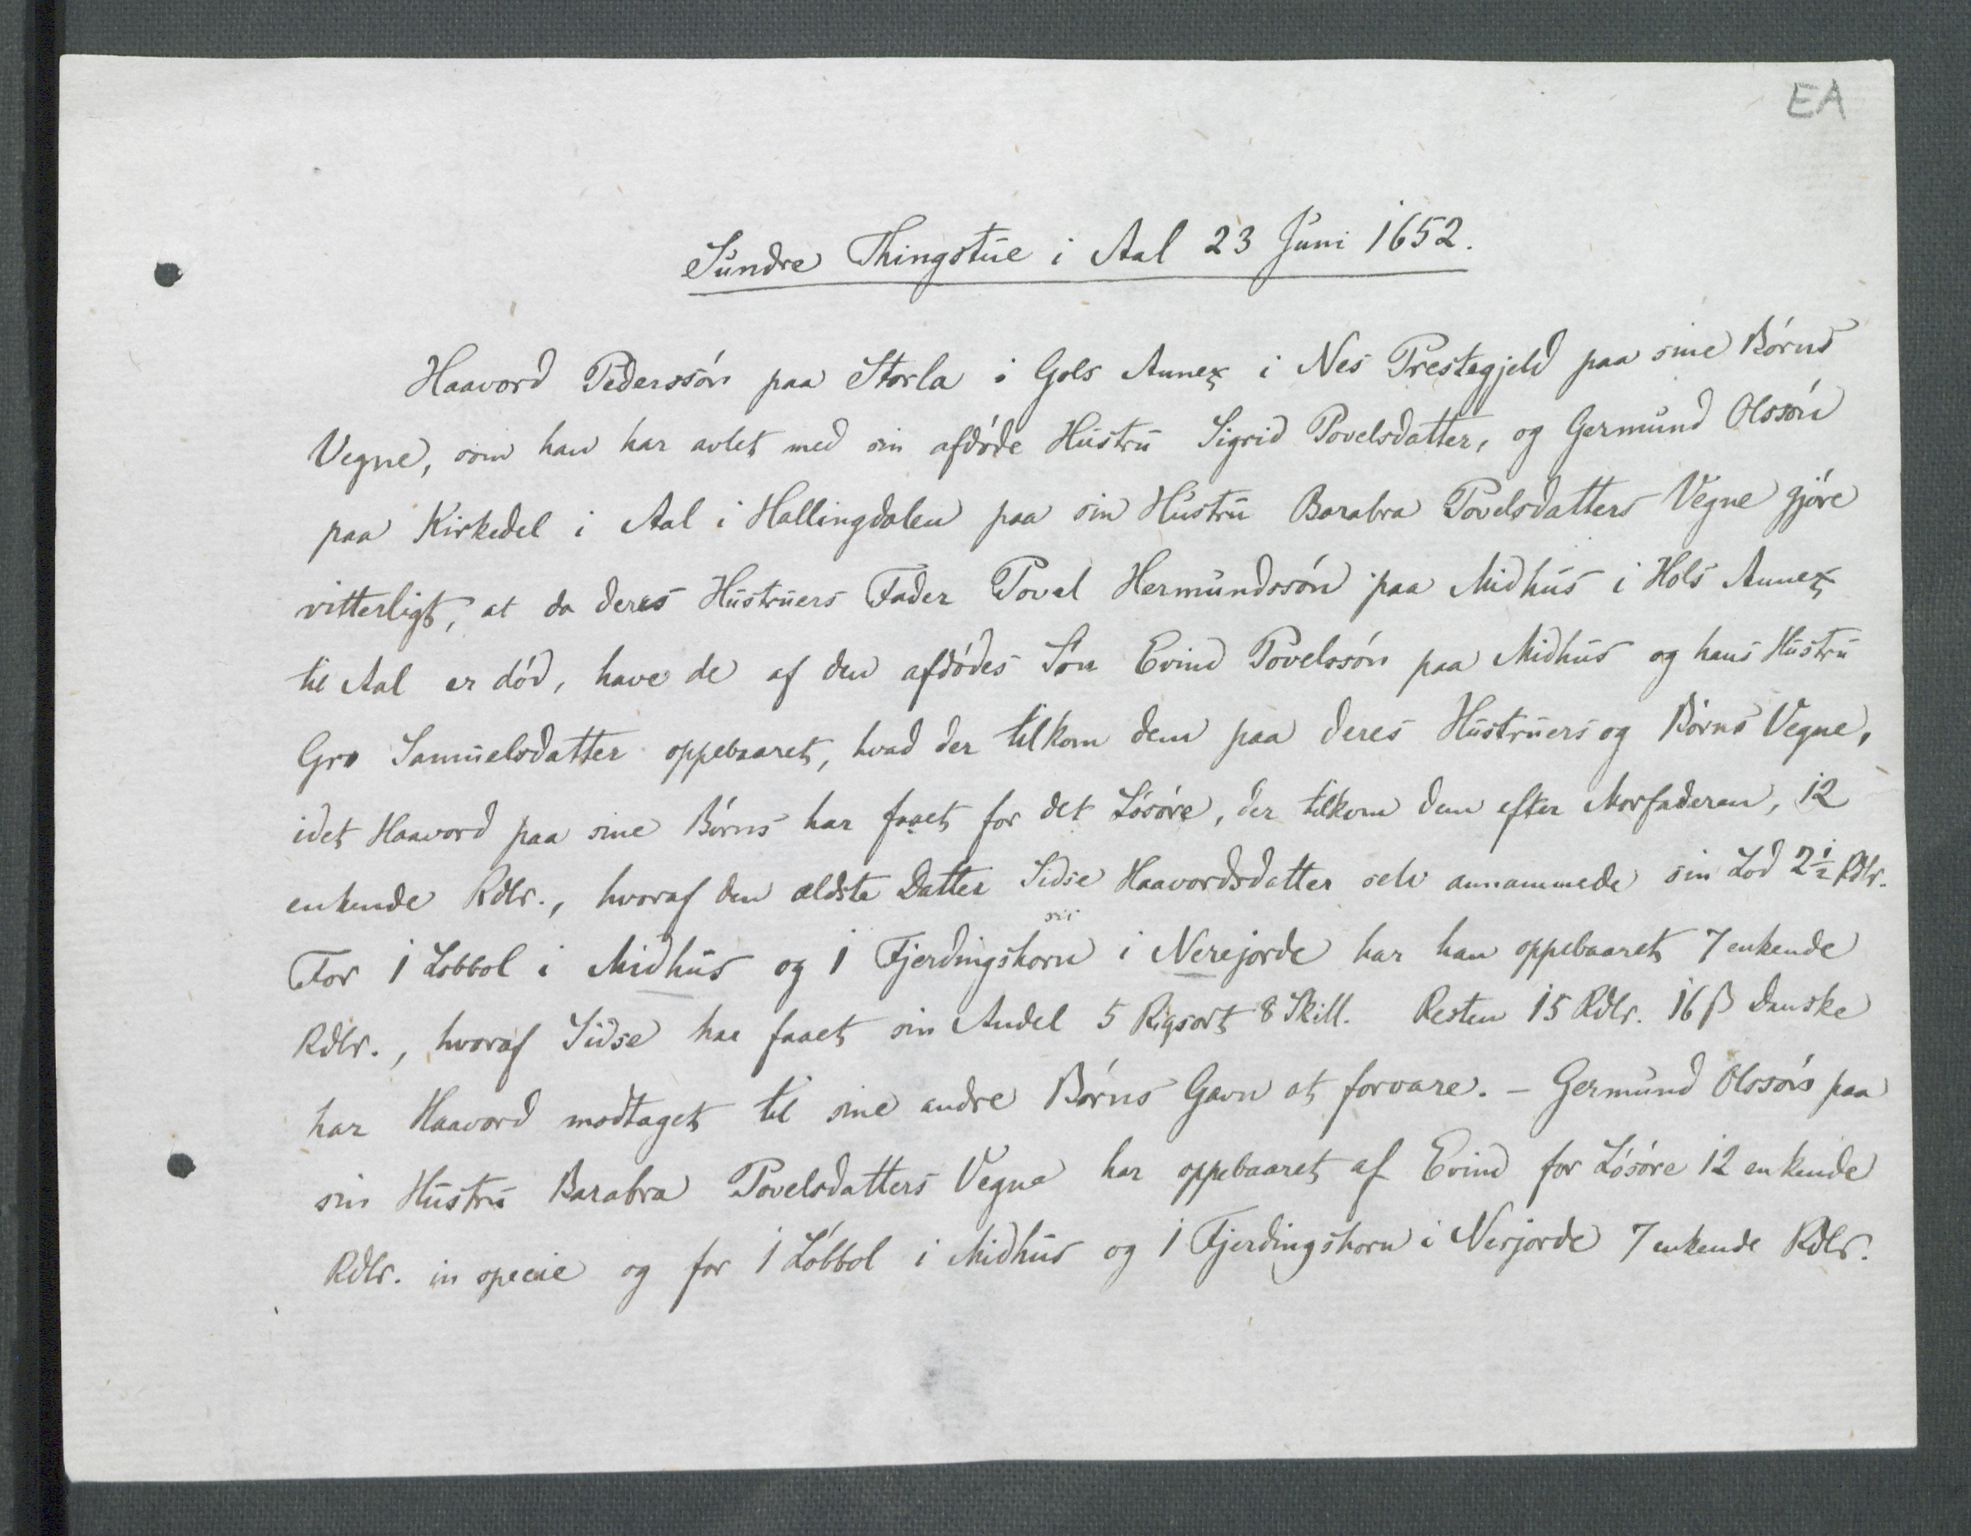 EA
Sundre Thingstue i Aal 23 Juni 1652.
Haavord Pederssón paa Storla i Gols Annex i Nes Prestegjeld paa sine Börns
Vegne, som han har avlet med sin afdöde Hustru Sigrid Povelsdatter, og Germund Olssón
paa Kirkedel i Aal i Hallingdalen paa sin Hustru Barabra Povelsdatters Vegne gjöre
vitterligt, at da deres Hustruers Fader Povel Hermundssón paa Midhus i Hols Annex
til Aal er död, have de af den afdödes Sön Evind Povelssón paa Midhus og hans Hustru
Gro Samuelsdatter oppebaaret, hvad der tilkom dem paa deres Hustruers og Börns Vegne,
idet Haavord paa sine Börns har faaet for det Lösöre, der tilkom dem efter Morfaderen, 12
enkende Rdlr., hvoraf den ældste Datter Sidse Haavordsdatter selv annammede sin Lod 2½ Rdlr.
For 1 Lobbol i Midhus og 1 Fjerdingshorn i Nerejorde har han oppebaaret 7 enkende
sic
Rdlr., hvoraf Sidse har faaet sin Andel 5 Rigsort 8 Skill. Resten 15 Rdlr. 16 ß Danske
har Haavord modtaget til sine andre Börns Gavn at forvare. – Germund Olssón paa
sin Hustru Barabra Povelsdatters Vegne har oppebaaret af Evind for Lösöre 12 enkende
Rdlr. in specie og for 1 Löbbol i Midhus og 1 Fjerdingshorn i Nerjorde 7 enkende Rdlr.